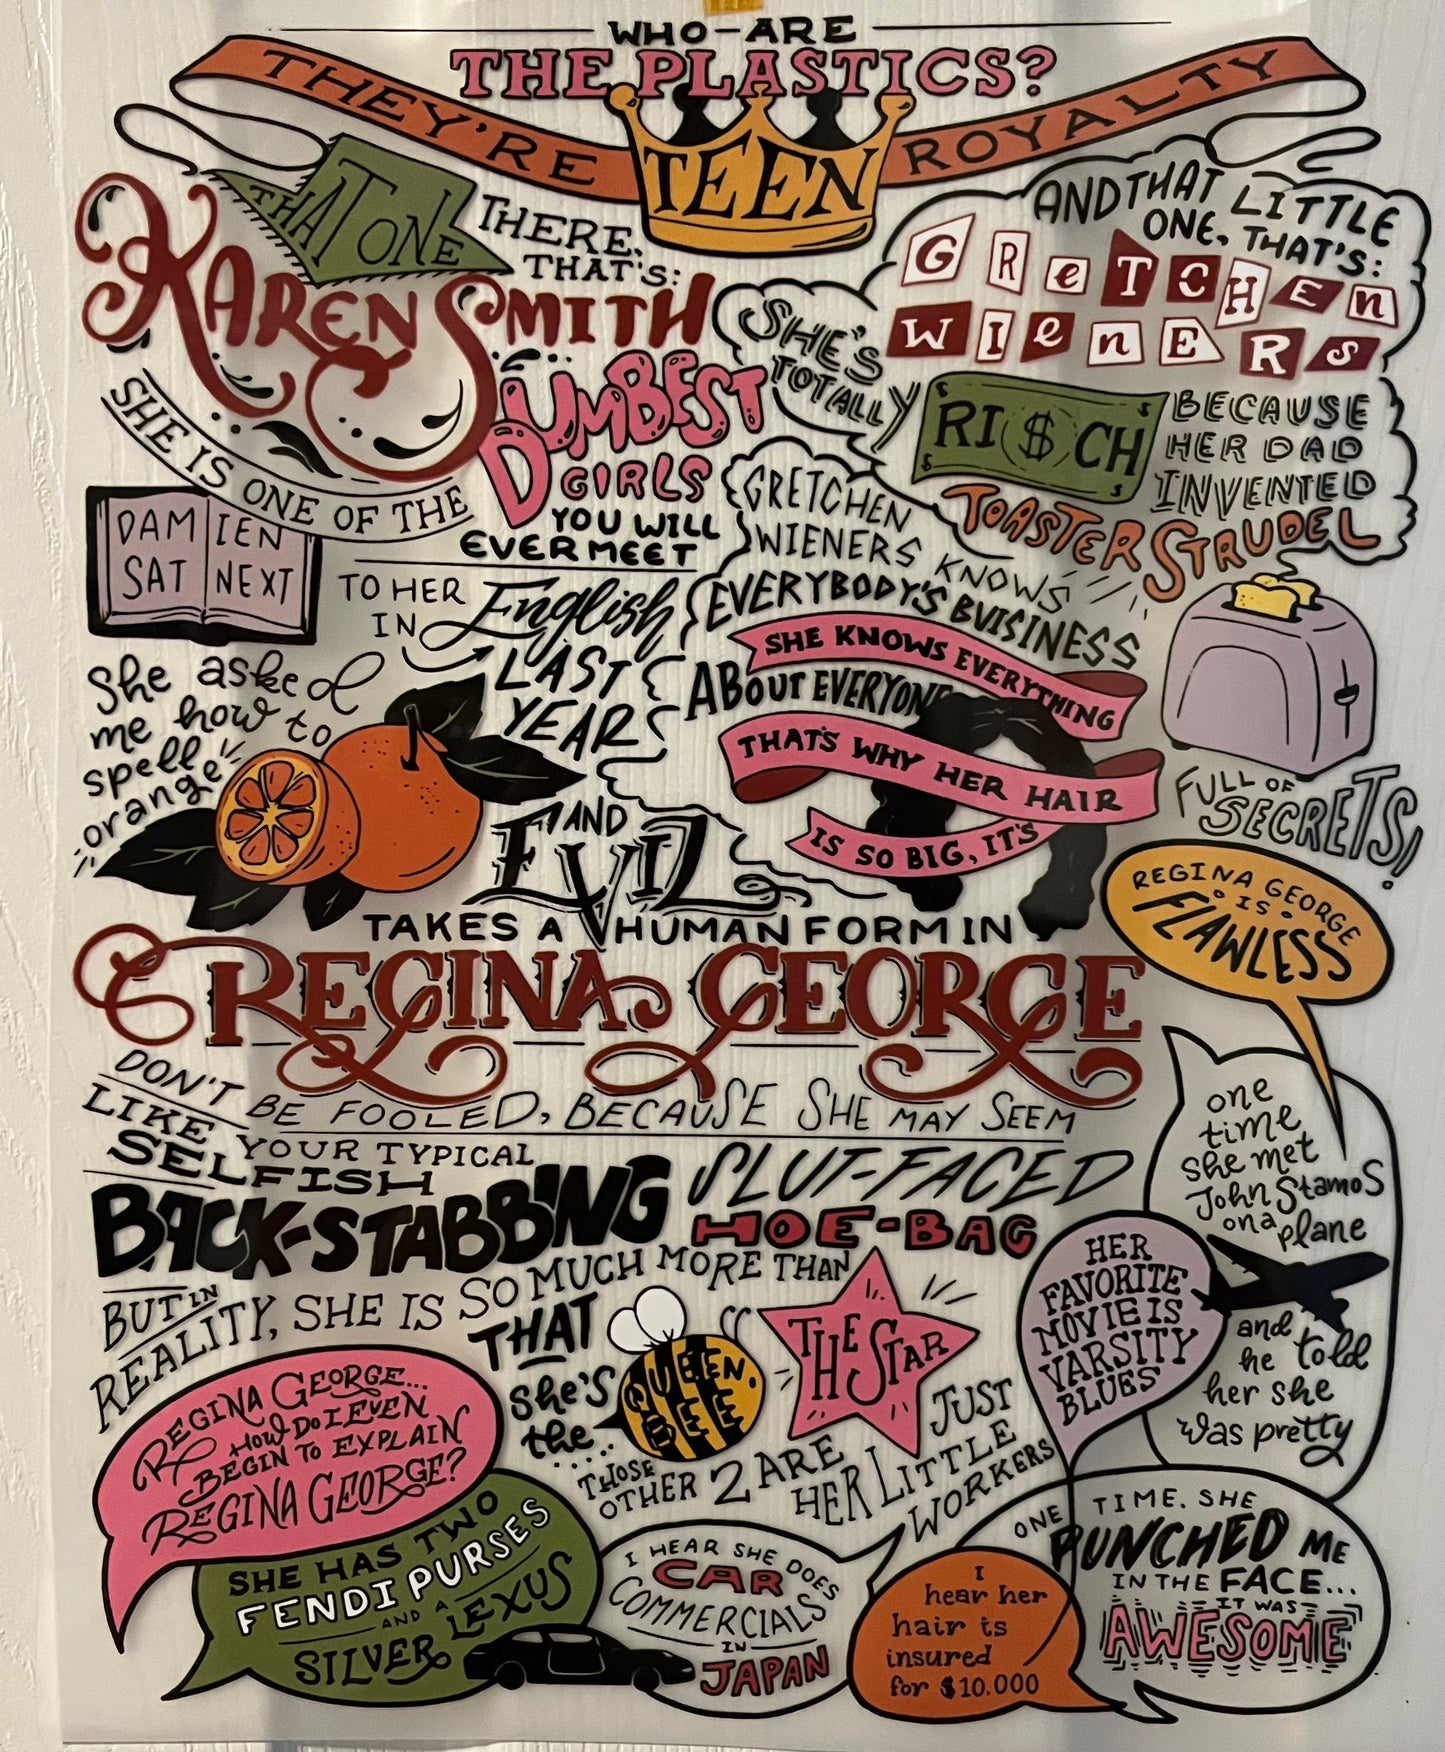 WHO-ARE
THE PLASTICS?
THEY'RE TEEN ROYALTY
THAT ONE
THERE,
THAT'S:
KAREN SMITH
SHE IS ONE OF THE
DUMBEST
GIRLS
YOU WILL
EVER MEET
DAMIEN
SAT NEXT
TO HER
IN English
LAST
YEAR
She asked
me how to
spell
orange
AND THAT LITTLE
ONE, THAT'S:
GReTCHEn
WIenERs
SHE'S
TOTALLY
RI$CH
BECAUSE
HER DAD
INVENTED
TOASTER STRUDEL
GRETCHEN
WIENERS KNOWS
EVERYBODY'S BVISINESS
SHE KNOWS EVERYTHING
ABOUT EVERYONE
THAT'S WHY HER HAIR
IS SO BIG, IT'S
FULL OF
SECRETS!
AND
EVIL
TAKES A HUMAN FORM IN
REGINA GEORGE
REGINA GEORGE
IS
FLAWLESS
DON'T BE FOOLED, BECAUSE SHE MAY SEEM
LIKE YOUR TYPICAL
SELFISH
BACK-STABBING SLUT-FACED
HOE-BAG
BUT IN
REALITY, SHE IS SO MUCH MORE THAN
THAT
she's
the..
QUEEN,
BEE
THE STAR
THOSE
OTHER 2 ARE
HER LITTLE
JUST
WORKERS
one
time
she met
John Stamos
on a plane
and
he told
her she
was pretty
HER
FAVORITE
MOVIE IS
VARSITY
BLUES
REGINA GEORGE...
HOW DO I EVEN
BEGIN TO EXPLAIN
REGINA GEORGE?
SHE HAS TWO
FENDI PURSES
AND A
SILVER LEXUS
I HEAR SHE DOES
CAR
COMMERCIALS
IN
JAPAN
I
hear her
hair is
insured
for $10.000
ONE TIME. SHE
PUNCHED ME
IN THE FACE...
IT WAS
AWESOME